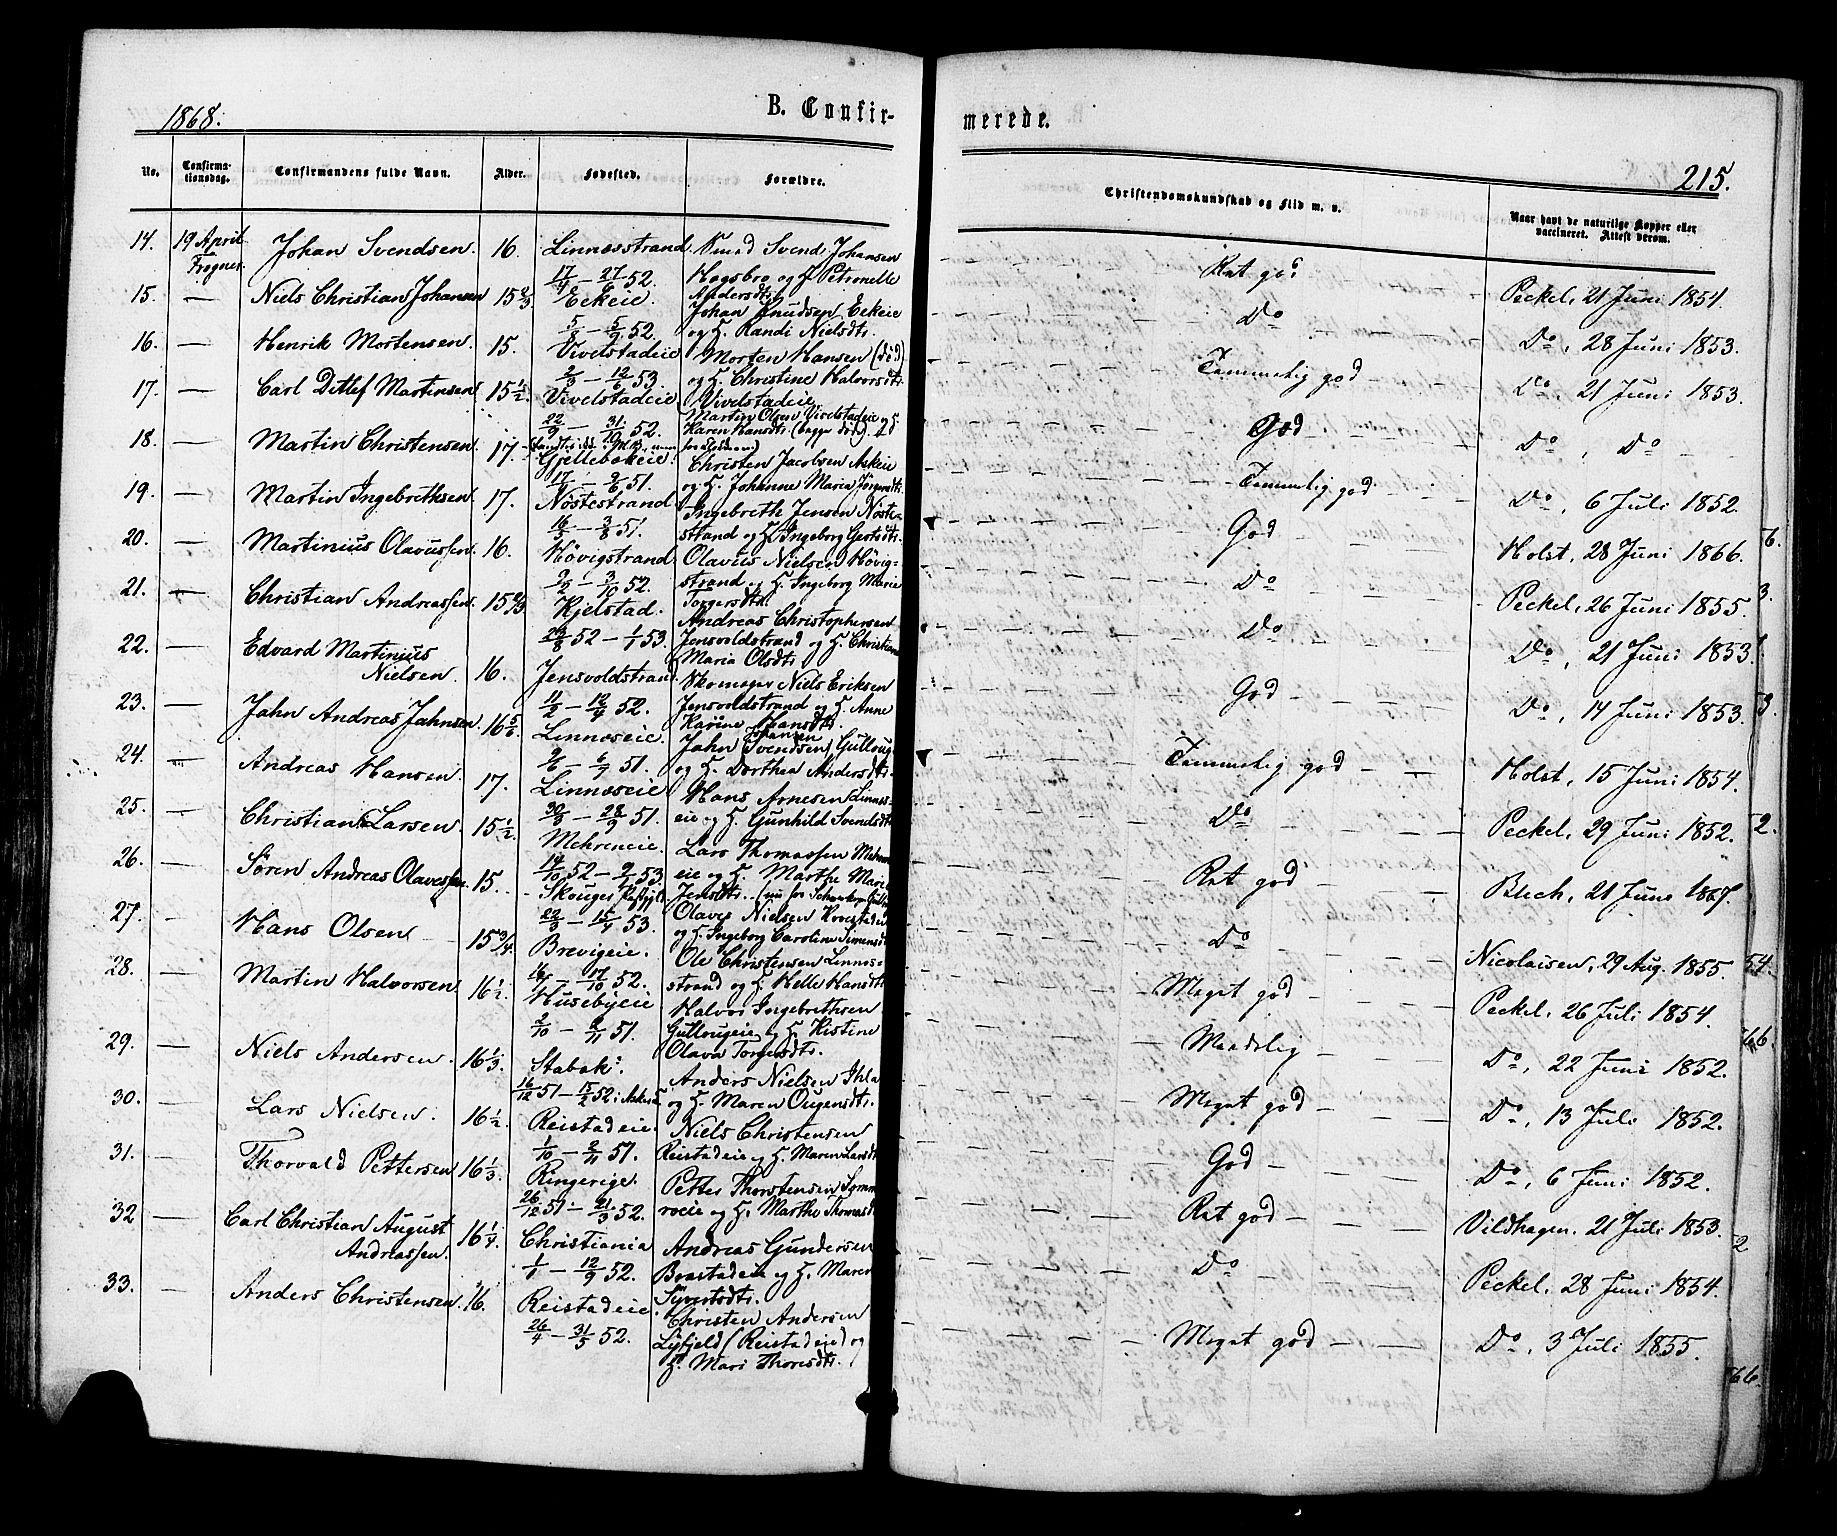 1868.
B. Confirmerede.
215.
No. Confirmationsdag. Confirmandens fulde Navn. Alder. Fødested. Forældre. Christendomskundskab og Flid m. v. Naar havt de naturlige Kopper eller vaccineret. Attest derom.
14. 19 April Frogner. Johan Svendsen. 16. Linnæsstrand 17/4 – 27/6 52. Svend Johansen Hagsbro og H. Petronelle Andersdtr. Ret god Peckel, 21 Juni 1854.
15. — Niels Christian Johansen 15 2/3 Eekeie. 5/8 – 5/9 52. Johan Knudsen Eekeie og H. Randi Nielsdtr. Do Do, 28 Juni 1853.
16. — Henrik Mortensen. 15. Vivelstadeie 2/3 – 12/6 53. Morten Hansen (död) og H. Christine Halvorsdtr. Vivelstadeie. Temmelig god Do, 21 Juni 1853.
17. — Carl Detlef Martinsen 15 1/2. Vivelstadeie 22/9 – 31/10 52. Martin Olsen Vivelstadeie og H. Karen Hansdtr. (begge död) God Do, Do
18. — Martin Christensen. 17. Gjellebækeie. 17/4 – 2/6 51. Christen Jacobsen Askeie og H. Johanne Maria Jörgensdtr. Temmelig god Do, 6 Juli 1852.
19. — Martin Ingebrethsen 17. Nöstestrand 16/5 – 3/8 51. Ingebreth Jensen Nöstestrand og H. Ingeborg Gertsdtr. God Holst, 28 Juni 1866.
20. — Martinius Olavussen. 16. Hövigstrand 3/10 52. Olavus Nielsen Hövigstrand og H. Ingeborg Marie Torgersdtr. Do Peckel, 26 Juni 1855.
21. — Christian Andreassen. 15 2/3 Kjelstad. 29/8 52 – 1/1 53. Andreas Christophersen Jensvoldstrand og H. Christiane Maria Olsdtr. Do Do, 21 Juni 1853.
22. — Edvard Martinius Nielsen. 16. Jensvoldstrand 11/2 – 12/4 52. Skomager Niels Eriksen Jensvoldstrand og H. Anne Karine Hansdtr. God Do, 14 Juni 1853.
23. — Jahn Andreas Jahnsen. 16 5/6 Linnæseie. 2/6 – 6/7 51. Jahn Svendsen Johansen Gulloug og H. Dorthea Andersdtr. Temmelig god Holst, 15 Juni 1854.
24. — Andreas Hansen. 17. Linnæseie 30/8 – 28/9 51. Hans Arnesen Linneseie og H. Gunhild Svendsdtr. Do Peckel, 29 Juni 1852.
25. — Christian Larsen. 15 1/2 Mehreneie. 14/10 52 – 2/1 53 Lars Thomassen Mehreneie og H. Marthe Marie Jensdtr. Ret god Blech, 21 Juni 1867.
26. — Sören Andreas Olavessen 15. Skouger Præstgjeld 22/3 – 15/4 53. Olaves Nielsen og H. Ingeborg Caroline Simensdtr. Do Nicolaisen, 29 Aug. 1855.
27. — Hans Olsen 15 3/4. Brevigeie. 17/10 52. Ole Christensen Linnesstrand og H. Helle Hansdtr. Meget god Peckel, 26 Juli 1854.
28. — Martin Halvorsen. 16 1/2. Husebyeie 2/10 – 2/11 51. Halvor Ingebrethsen Gullougeie og H. Kistine Olava Torgersdtr. Maadelig Do, 22 Juni 1852.
29. — Niels Andersen. 16 1/3. Stabæk. 16/12 51 – 15/2 52 i Asker. Anders Nielsen Ihle og H. Maren Ougensdtr. Meget god Do, 13 Juli 1852.
30. — Lars Nielsen. 16 1/2. Reistadeie. 1/10 – 2/11 51. Niels Christensen Reistadeie og H. Maren Larsdtr. God Do, 6 Juni 1852.
31. — Thorvald Pettersen 16 1/3. Ringerige. 26/12 51 – 21/3 52. Petter Thorstensen og H. Marthe Thomasdtr. Ret god Vildhagen. 21 Juli 1853.
32 — Carl Christian August Andreassen. 16 1/4. Christiania 1/1 – 12/9 52. Andreas Gundersen og H. Maren Syversdtr. Do Peckel. 28 Juni 1854.
33. — Anders Christensen 16. Reistadeie. 26/4 – 31/5 52. Christen Andersen Lyfjeld (Reistadeie) og H. Mari Thoresdtr. Meget god Do, 3 Juli 1855.